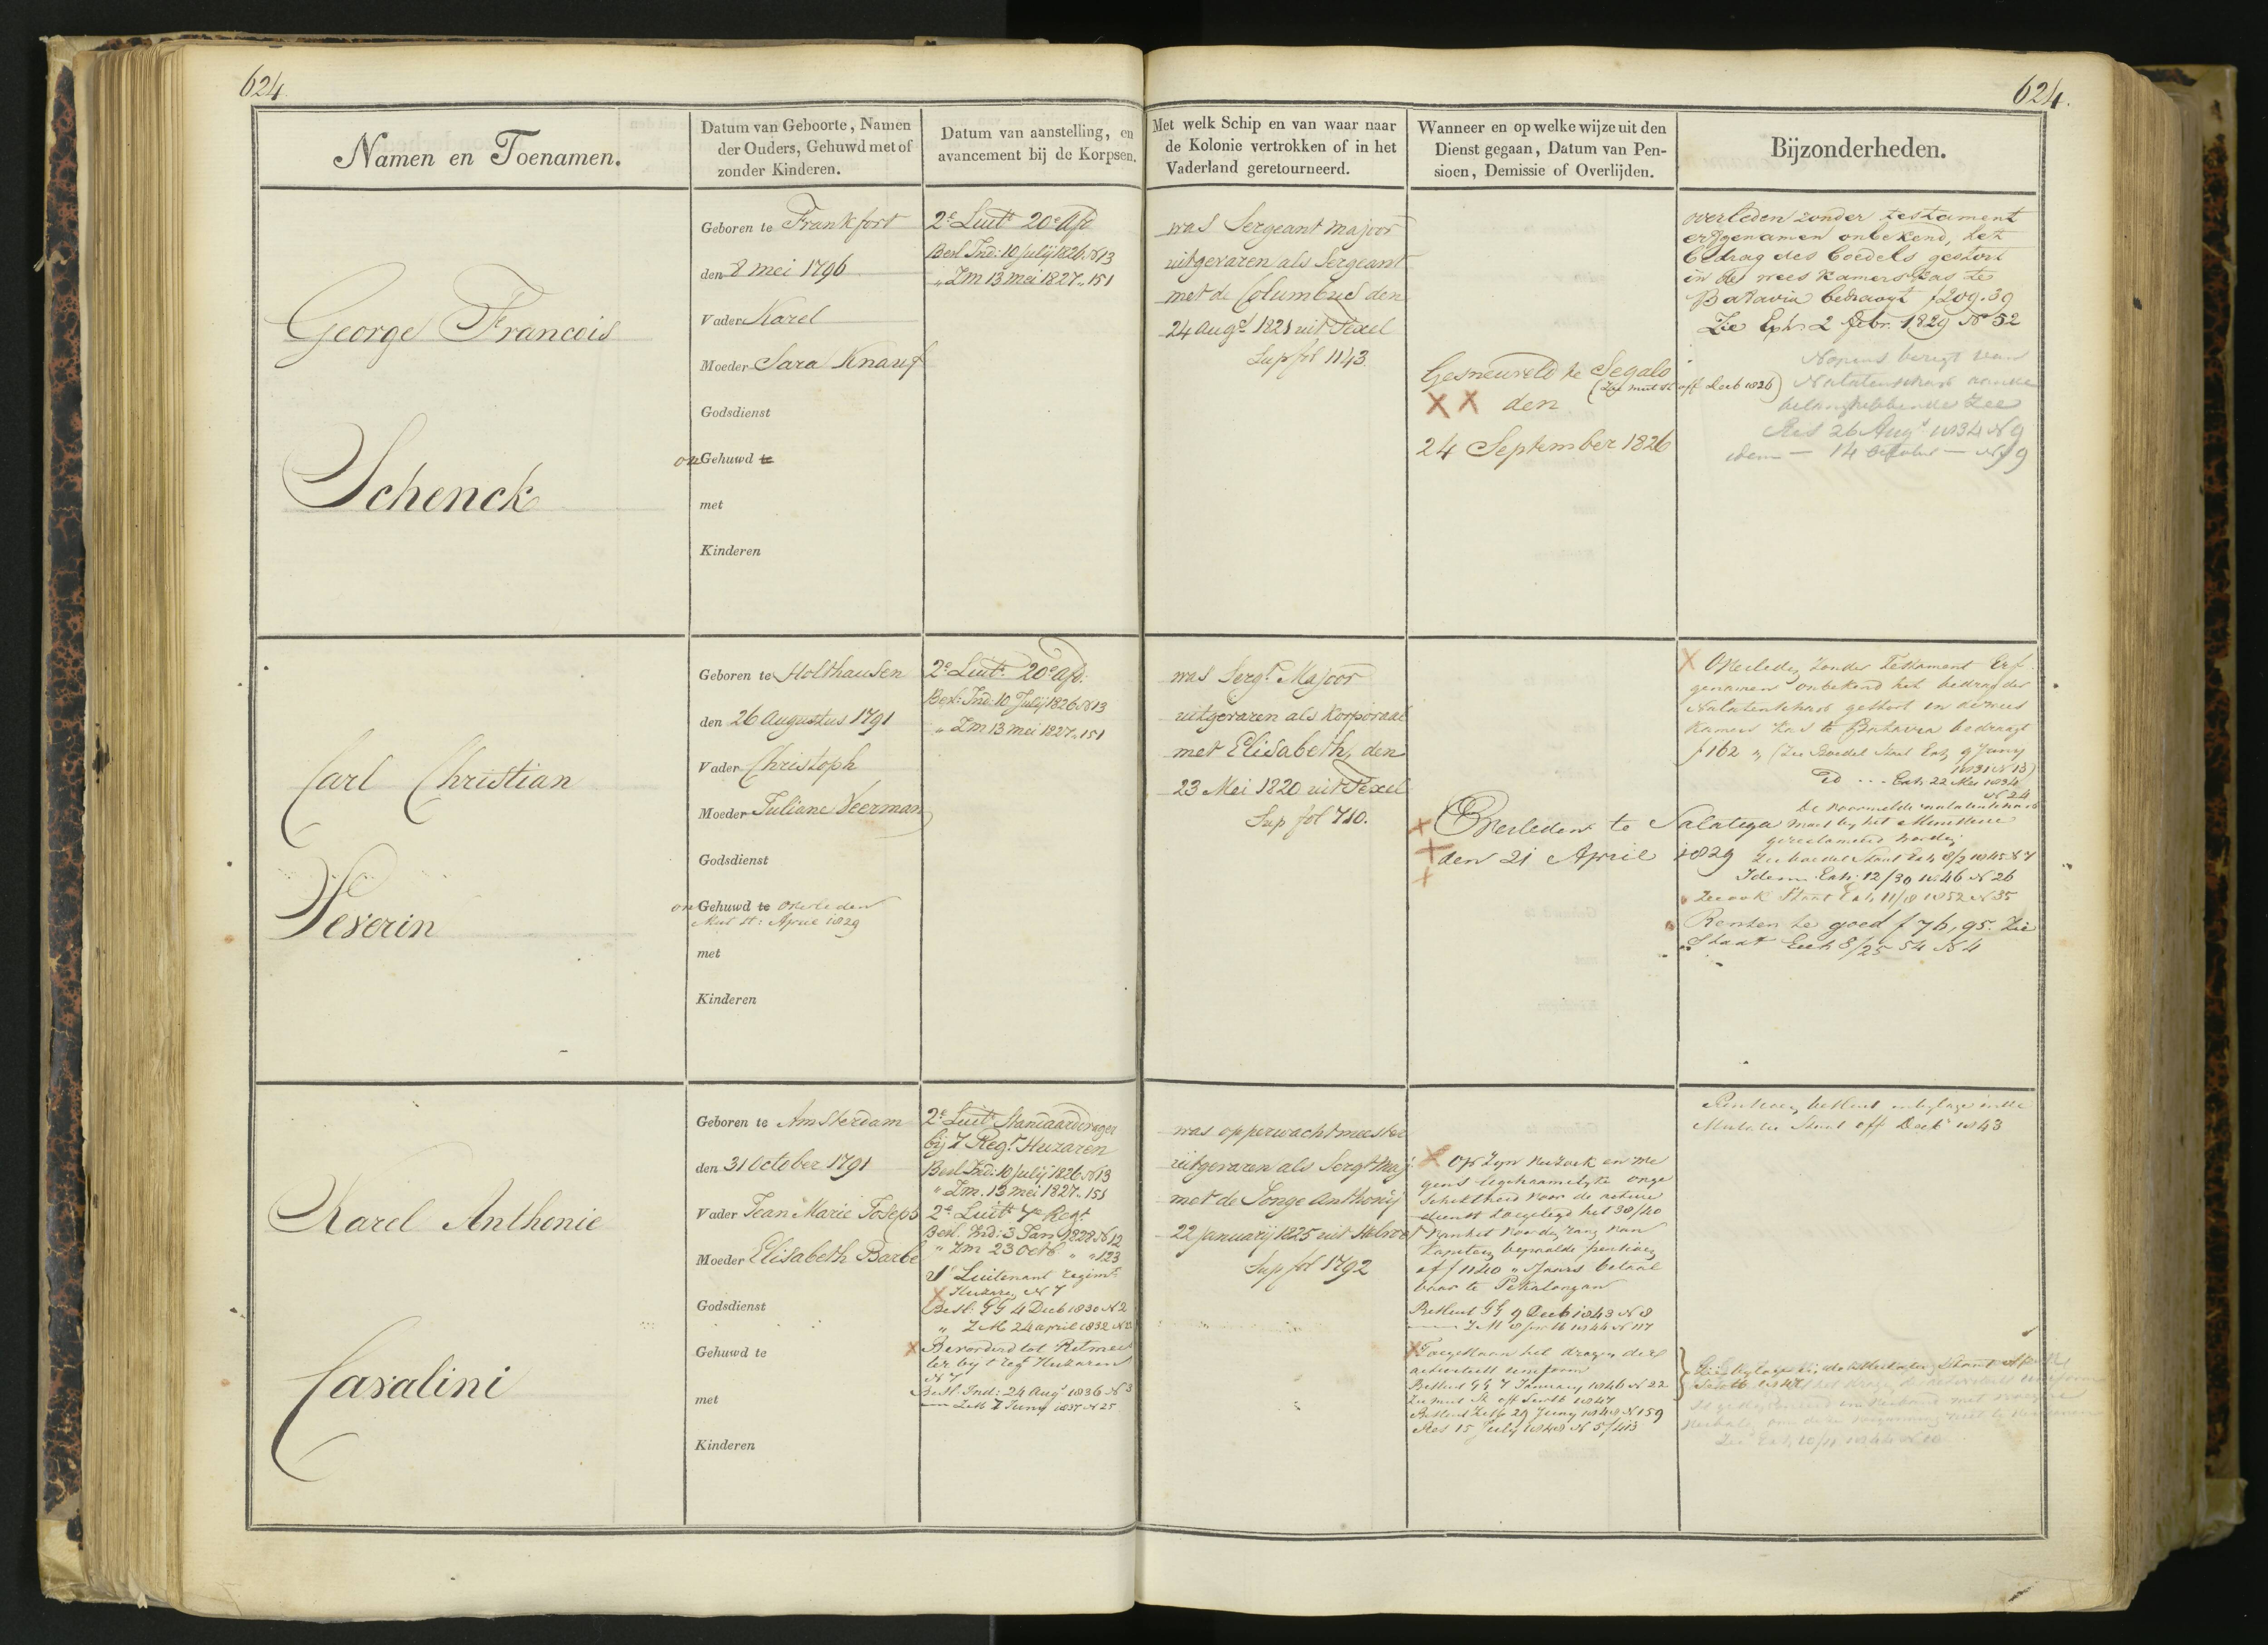 624.
624.
Namen en Toenamen.
Datum van Geboorte, Namen
der Ouders, Gehuwd met of
zonder Kinderen.
Datum van aanstelling, en
avancement bij de Korpsen.
Met welk Schip en van waar naar
de Kolonie vertrokken of in het
Vaderland geretourneerd.
Wanneer en op welke wijze uit den
Dienst gegaan, Datum van Pen-
sioen, Demissie of Overlijden.
Bijzonderheden.
George Francois
Schenck
Geboren te Frankfort
den 8 mei 1796
Vader Karel
Moeder Sara Knauf
Godsdienst
on Gehuwd te
met
Kinderen
2e Luitt 20e Afd
Besl Ind: 10 July 1826 N 13
„ Zm 13 mei 1827 „ 151
was Sergeant majoor
uitgevaren als Sergeant
met de Columbus den
24 Augt 1821 uit Texel
Sup fol 1143
Gesneuveld te Segalo
(Zie mut st off Decb 1826)
XX den
24 September 1826
overleden zonder testament
erfgenamen onbekend, het
bedrag des boedels gestort
in de weeskamers kas te
Batavia bedraagt f 209.39
Zie Exh. 2 Febr. 1829 No 52
Nopens berigt van
Nalatenschap aan de
belanghebbende Zee
Res 26 Augt 1834 N 9
idem — 14 October — N 9
Carl Christian
Severin
Geboren te Holthausen
den 26 Augustus 1791
Vader Christoph
Moeder Juliane Veerman
Godsdienst
on Gehuwd te overleden
Mut st: April 1829
met
Kinderen
2e Luitt 20e Afd.
Besl: Ind: 10 July 1826 N 13
„ Zm 13 mei 1827 „ 151
was Sergt Majoor
uitgevaren als Korporaal
met Elisabeth, den
23 Mei 1820 uit Texel
Sup fol 710.
Overleden te Salatiga
den 21 April 1829
X Overleden zonder Testament Erf-
genamen onbekend het bedrag der
Nalatenschap gestort in de wees
Kamers Kas te Batavia bedraagt
f 162 „ (Zie Boedel Staat Exh 9 Juny
1831 N 13)
Id ... Exh 22 Mei 1834
N 24
De voormelde nalatenschap
moet by het Ministerie
gereclameerd worden
Zie boedel Staat Exh 8/2 1845 N 7
Idem Exh: 12/30 1846 N 26
Zie ook Staat Exh 11/18 1852 N 35
Renten te goed f 76,95. Zie
Staat Exh 8/25 54 N 4
Karel Anthonie
Cavalini
Geboren te Amsterdam
den 31 October 1791
Vader Jean Marie Joseph
Moeder Elisabeth Barbe
Godsdienst
Gehuwd te
met
Kinderen
2e Luitt Standaarddrager
bij 7 Regt Huzaren
Besl Ind: 10 July 1826 N 13
„ Zm. 13 mei 1827 „ 151
2e Luitt 7e Regt
Besl. Ind: 3 Jan 1828 N 12
„ Zm 23 Octb „ „ 123
1e Luitenant regimt
X Huzaren N 7
Besl: GG 4 Decb 1830 N 2
„ ZM 24 april 1832 N 22
X Bevorderd tot Ritmees
ter bij t regt Huzaren
N 7
Besl: Ind: 24 Augt 1836 N 3
— ZM 7 Juny 1837 N 25
was opperwachtmeester
uitgevaren als Sergt Maj
met de Jonge Anthonij
22 january 1825 uit Helvoet
Sup fol 1792
X Op zyn verzoek en we
gens ligchamelyke onge
schiktheid voor de active
dienst toegelegd het 38/40
van het voor den rang van
Kapitein bepaalde pensioen
of f 1140 „ 's Jaars betaal
baar te Pekalongan
Besluit GG 9 Decb 1843 N 8
X Toegestaan het dragen der
activiteits uniform
Besluit GG 7 January 1846 N 22
Zie mut St off Septb 1847
Besluit ZM 29 Juny 1848 N 159
Res 15 July 1848 N 5/413
Pensioen besluit in bylage in de
Mutatie Staat off Decb 1843